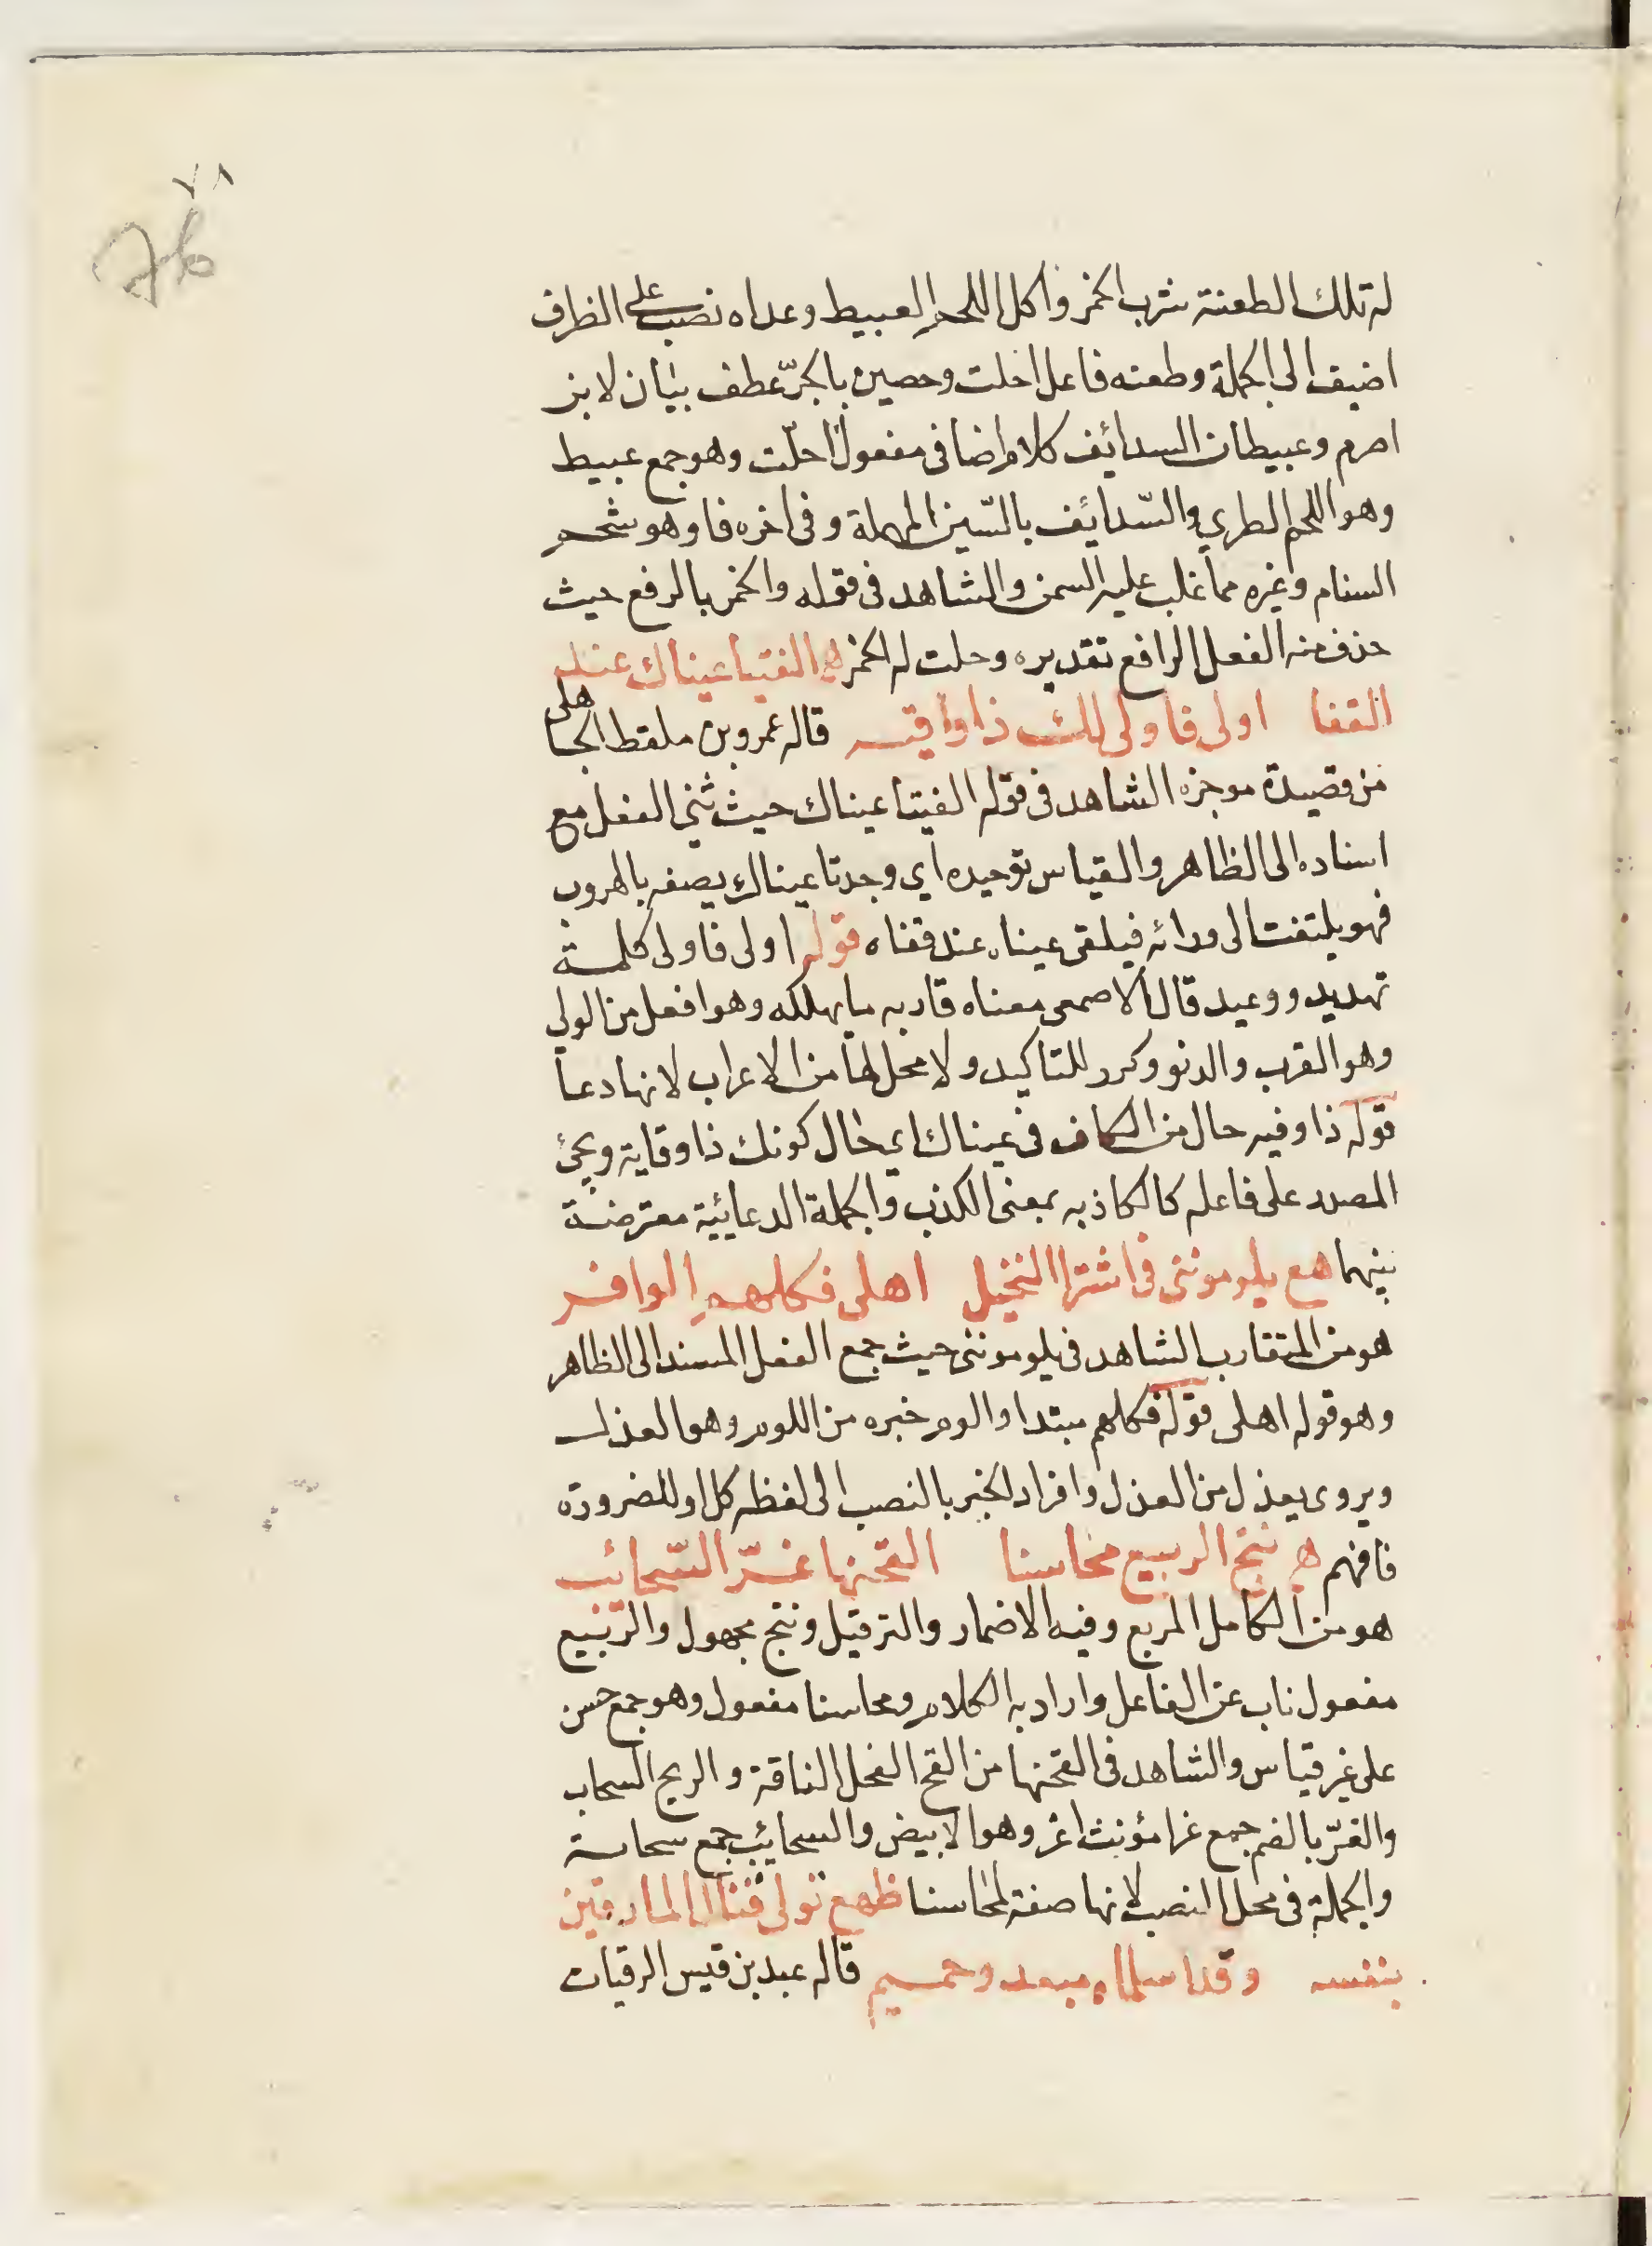 ٧٨
له تلك الطعنة شرب الخمر واكل اللحم العبيط وغداه نصب على الظرف
اضيف الى الجملة وطعنه فاعل احلت وحصين بالجرّ عطف بيان لابن
اصرم وعبيطات السدائف كلام اضافى مفعول احلّت وهو جمع عبيط
وهو اللحم الطري والسّدائف بالسّين المهملة وفى اخره فا وهو شحم
السنام وغيره مما غلب عليه السمن والشاهد فى قوله والخمر بالرفع حيث
حذف منه الفعل الرافع تقديره وحلت له الخمر ه الفتيا عيناك عند
القفا اولى فاولى لك ذا واقيه قاله عمرو بن ملقط الجاهلى
من قصيدة موجزه الشاهد فى قوله الفيتا عيناك حيث ثنى الفعل مع
اسناده الى الظاهر والقياس توحيده اي وجدتا عيناك يصفه بالهروب
فهو يلتفت الى ورائه فيلقى عيناه عند قفاه قوله اولى فاولى كلمة
تهديد ووعيد قال الاصمعى معناه قاربه ما يهلكه وهو افعل من الولي
وهو القرب والدنو وكرر للتاكيد ولا محل لها من الاعراب لانها دعا
قوله ذا وقيه حال من الكاف فى عيناك اى حال كونك ذا وقاية ويجئ
المصدر على فاعله كالكاذبه بمعنى الكذب والجملة الدعائية معترضة
بينهما هع يلومونني فى اشترا النخيل اهلى فكلهم الوافر
هو من المتقارب الشاهد فى يلومونني حيث جمع الفعل المسند الى الظاهر
وهو قوله اهلى قوله فكلهم مبتدا والوم خبره من اللوم وهو العذل
ويروى يعذل من العذل وافراد الخبر بالنصب الى لفظه كل او للضرورة
فافهم ه نتج الربيع محاسنا القحنها غرّ السّحائب
هو من الكامل المربع وفيه الاضمار والترفيل ونتج مجهول والربيع
مفعول ناب عن الفاعل واراد به الكلام ومحاسنا مفعول وهو جمع حسن
على غير قياس والشاهد فى القحنها من القح الفحل الناقة والريح السحاب
والغرّ بالضم جمع غرا مؤنث اغر وهو الابيض والسحائب جمع سحابة
والجملة فى محل النصب لانها صفة لمحاسنا ظهع تولى قتال المارقين
بنفسه وقد اسلماه مبعد وحميم قاله عبد بن قيس الرقيات